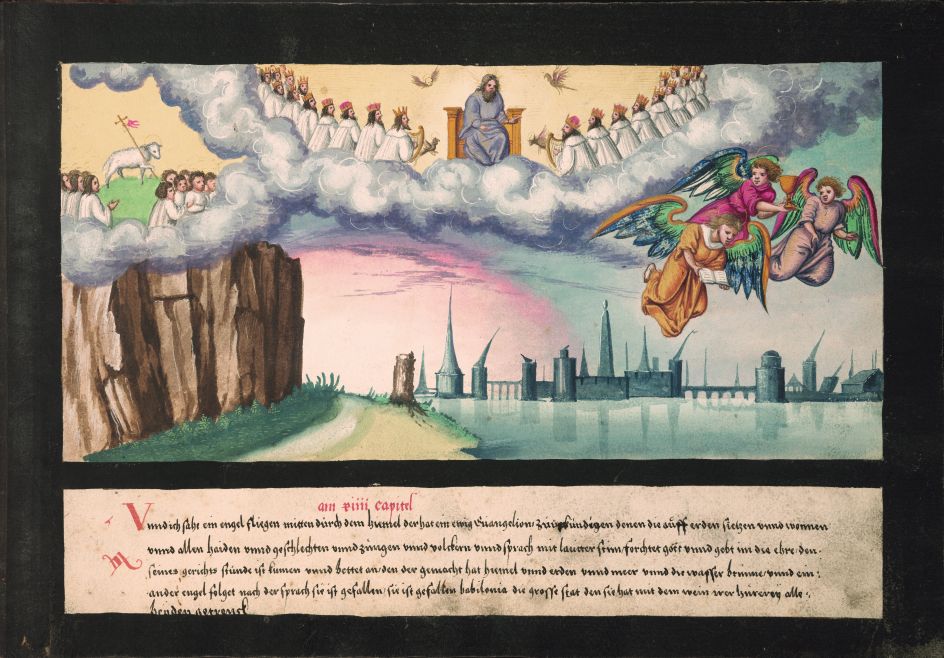 am xiiii capitel
Vnnd ich sahe ein engel fliegen mitten durch dem himel der hat ein ewig Euangelion zuuerkündigen denen die auff erden sietzen vnnd wonnen
vnnd allen haiden vnnd geschlechten vnnd zungen vnnd volckern vnnd sprach mit lautter stim forchtet gott vnnd gebt im die ehre den
seines gerichts stunde ist kumen vnnd bettet an den der gemacht hat himel vnnd erden vnnd meer vnnd die wasser brunne vnnd ein
ander engel folget nach der sprach sie ist gefallen sie ist gefallen babilonia die grosse stat den sie hat mit dem wein irer hurerey alle
heyden getrenck